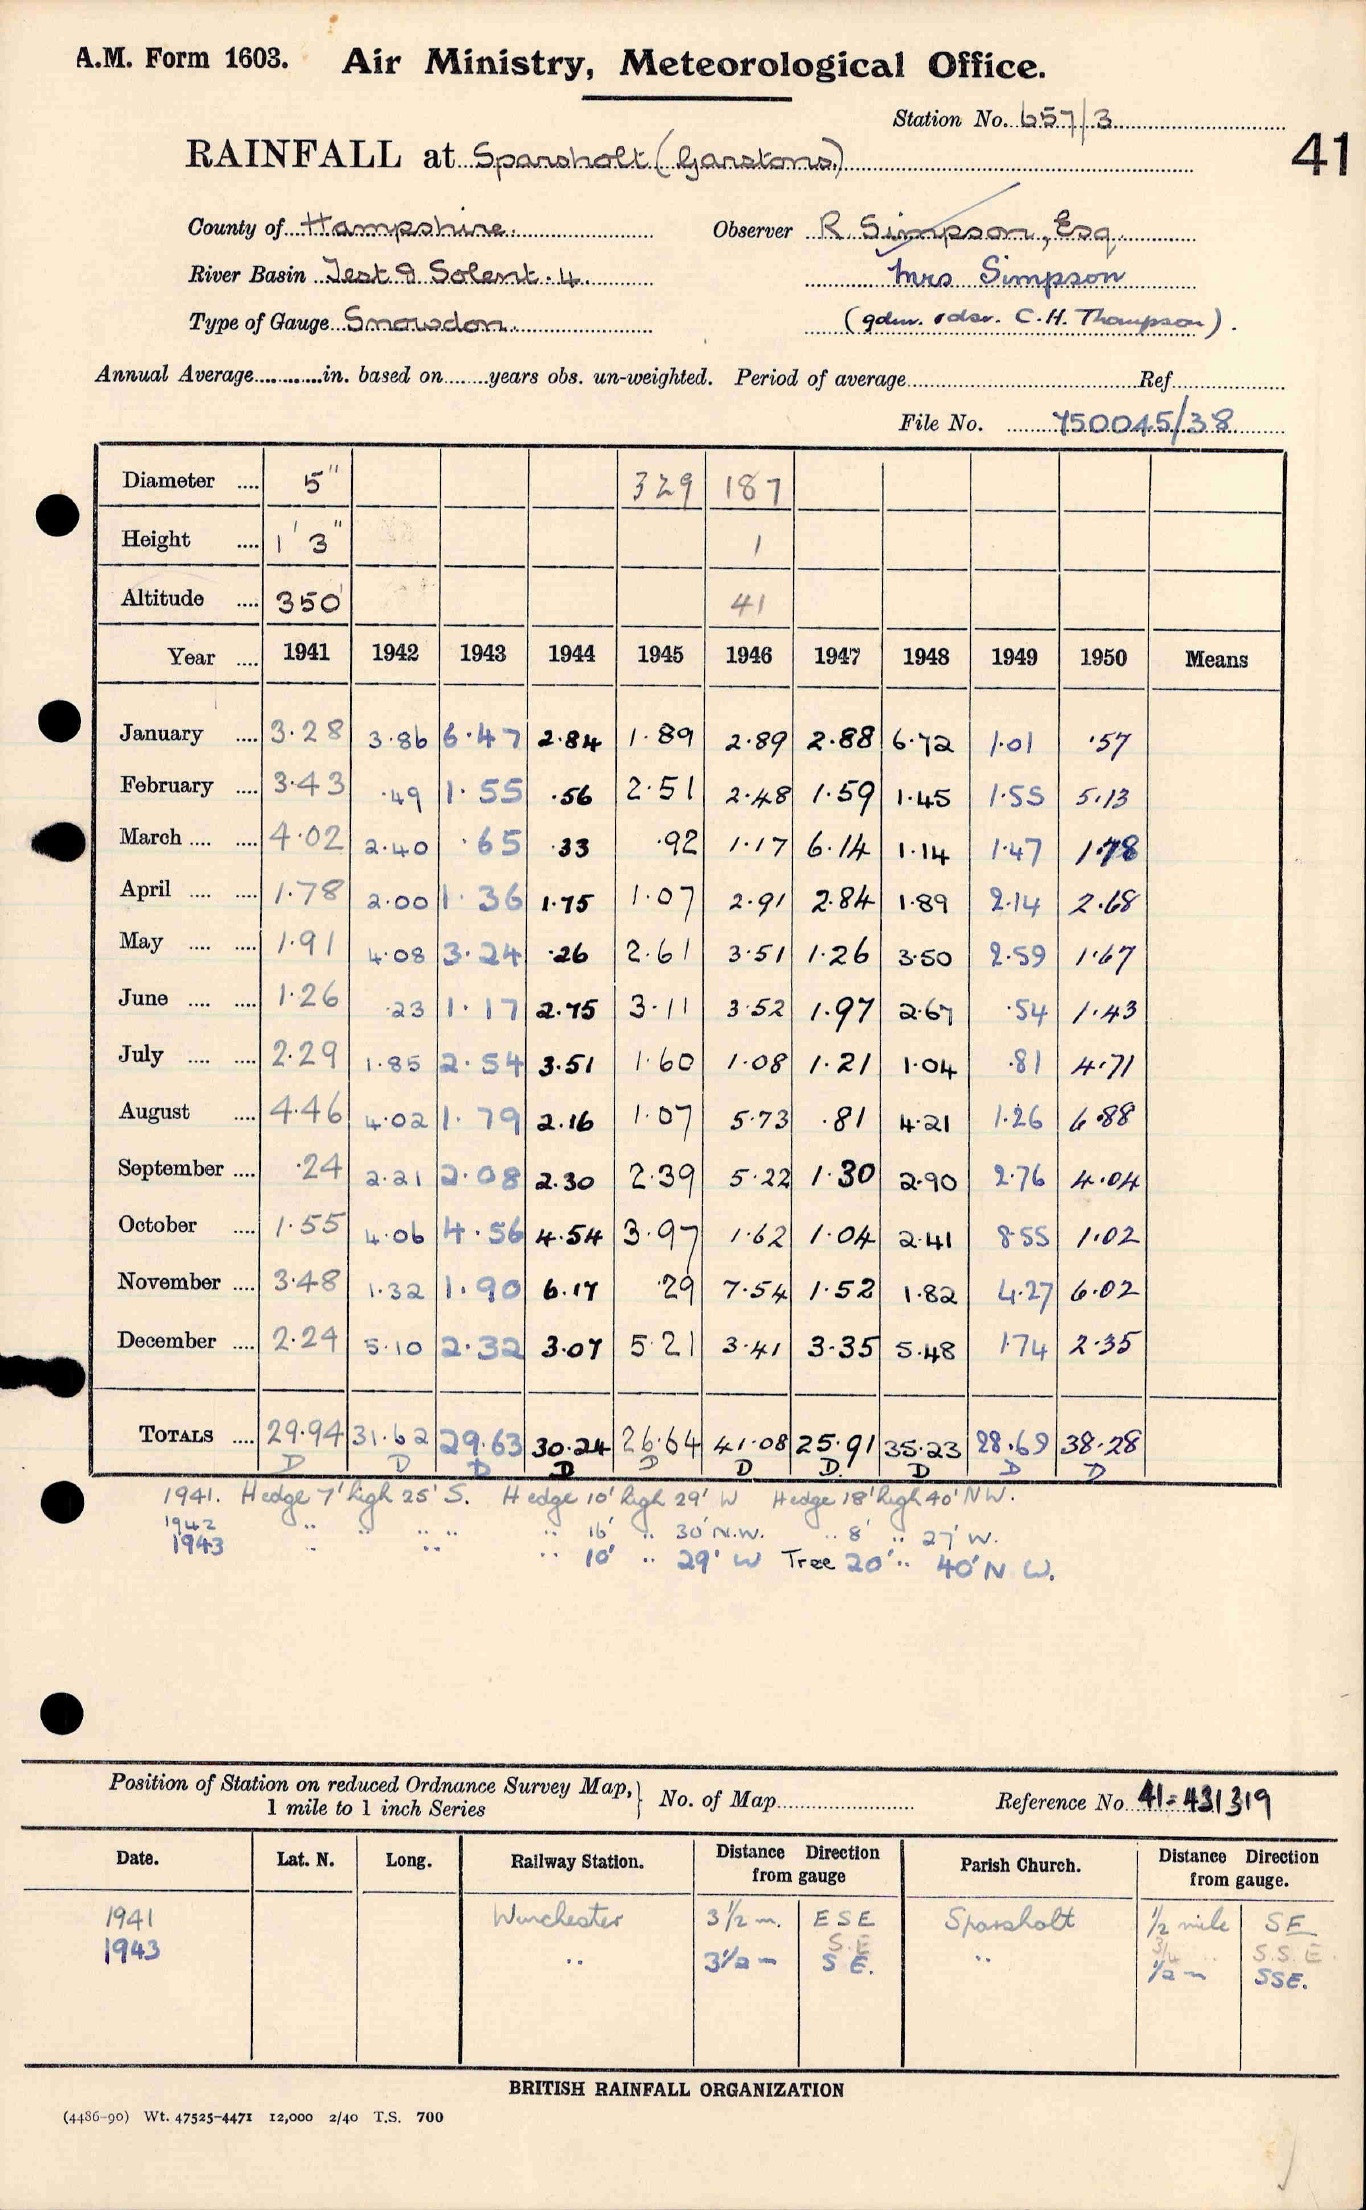 A.M. Form 1603. Air Ministry, Meteorological Office.
Station No. 657/3
41
RAINFALL at Sparsholt (Garstons)
County of Hampshire. Observer R Simpson, Esq.
River Basin Test & Solent. 4. Mrs Simpson
Type of Gauge Snowdon. (gdnr. obsr. C.H. Thompson).
Annual Average............in. based on........years obs. un-weighted. Period of average............Ref............
File No. 750045/38
Diameter .... 5" 329 187
Height .... 1' 3" 1
Altitude .... 350' 41
Year .... 1941 1942 1943 1944 1945 1946 1947 1948 1949 1950 Means
January .... 3.28 3.86 6.47 2.84 1.89 2.89 2.88 6.72 1.01 .57
February .... 3.43 .49 1.55 .56 2.51 2.48 1.59 1.45 1.55 5.13
March .... .... 4.02 2.40 .65 .33 .92 1.17 6.14 1.14 1.47 1.78
April .... .... 1.78 2.00 1.36 1.75 1.07 2.91 2.84 1.89 2.14 2.68
May .... .... 1.91 4.08 3.24 .26 2.61 3.51 1.26 3.50 2.59 1.67
June .... .... 1.26 .23 1.17 2.75 3.11 3.52 1.97 2.67 .54 1.43
July .... .... 2.29 1.85 2.54 3.51 1.60 1.08 1.21 1.04 .81 4.71
August .... 4.46 4.02 1.79 2.16 1.07 5.73 .81 4.21 1.26 6.88
September .... .24 2.21 2.08 2.30 2.39 5.22 1.30 2.90 2.76 4.04
October .... 1.55 4.06 4.56 4.54 3.97 1.62 1.04 2.41 8.55 1.02
November .... 3.48 1.32 1.90 6.17 .29 7.54 1.52 1.82 4.27 6.02
December .... 2.24 5.10 2.32 3.07 5.21 3.41 3.35 5.48 1.74 2.35
TOTALS .... 29.94 31.62 29.63 30.24 26.64 41.08 25.91 35.23 28.69 38.28
D D D D D D D. D D D
1941. Hedge 7' high 25' S. Hedge 10' high 29' W Hedge 18' high 40' NW.
1942 " " " " " 16' " 30' N.W. " 8' " 27' W.
1943 " " " 10' " 29' W Tree 20' " 40' N W.
Position of Station on reduced Ordnance Survey Map,} No. of Map............ Reference No 41=431319
1 mile to 1 inch Series
Date. Lat. N. Long. Railway Station. Distance Direction from gauge Parish Church. Distance Direction from gauge.
1941 Winchester 3 1/2 m. ESE Sparsholt 1/2 mile SE
S.E 3/4 " S.S.E.
1943 " 3 1/2 m S E. " 1/2 m SSE.
BRITISH RAINFALL ORGANIZATION
(4486-90) Wt. 47525-4471 12,000 2/40 T.S. 700